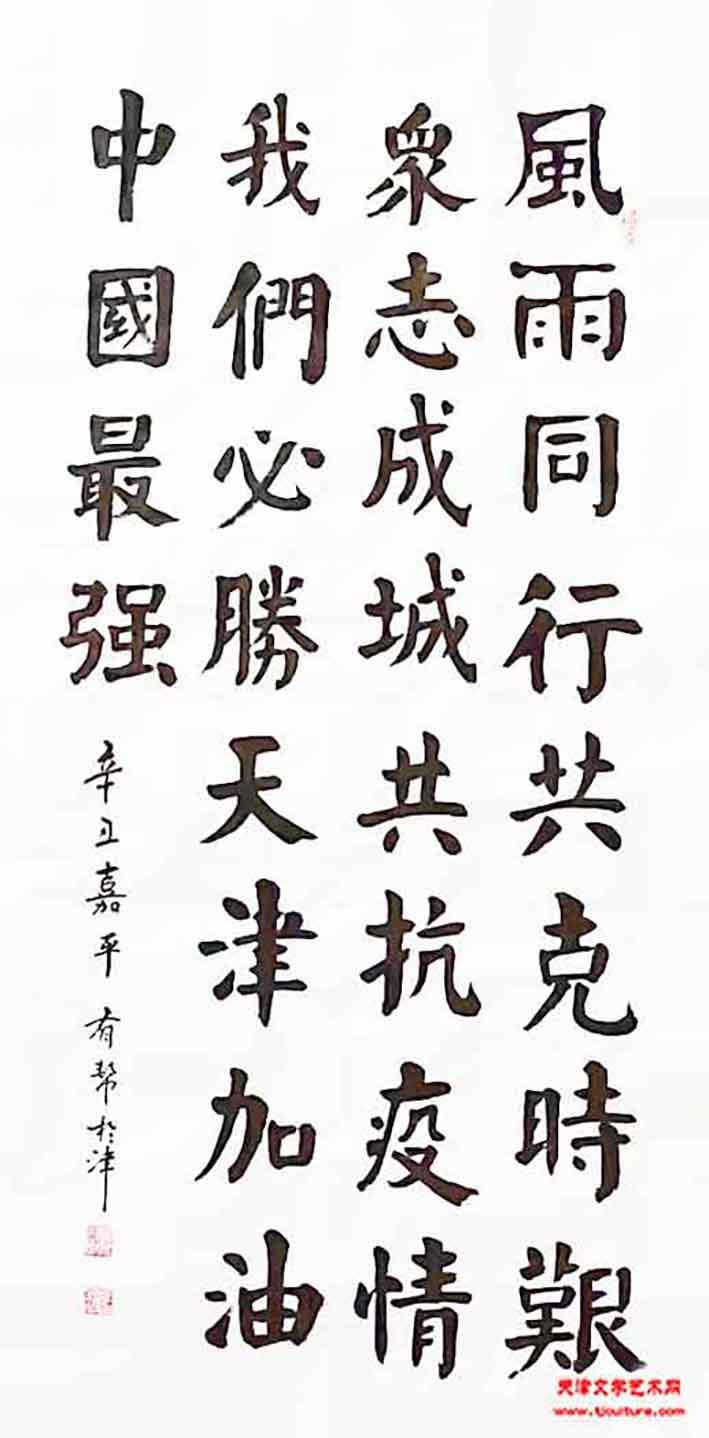 風雨同行共克時艱
衆志成城共抗疫情
我們必勝天津加油
中國最强
辛丑嘉平有幇於津
天津文学艺术网
www.tjculture.com